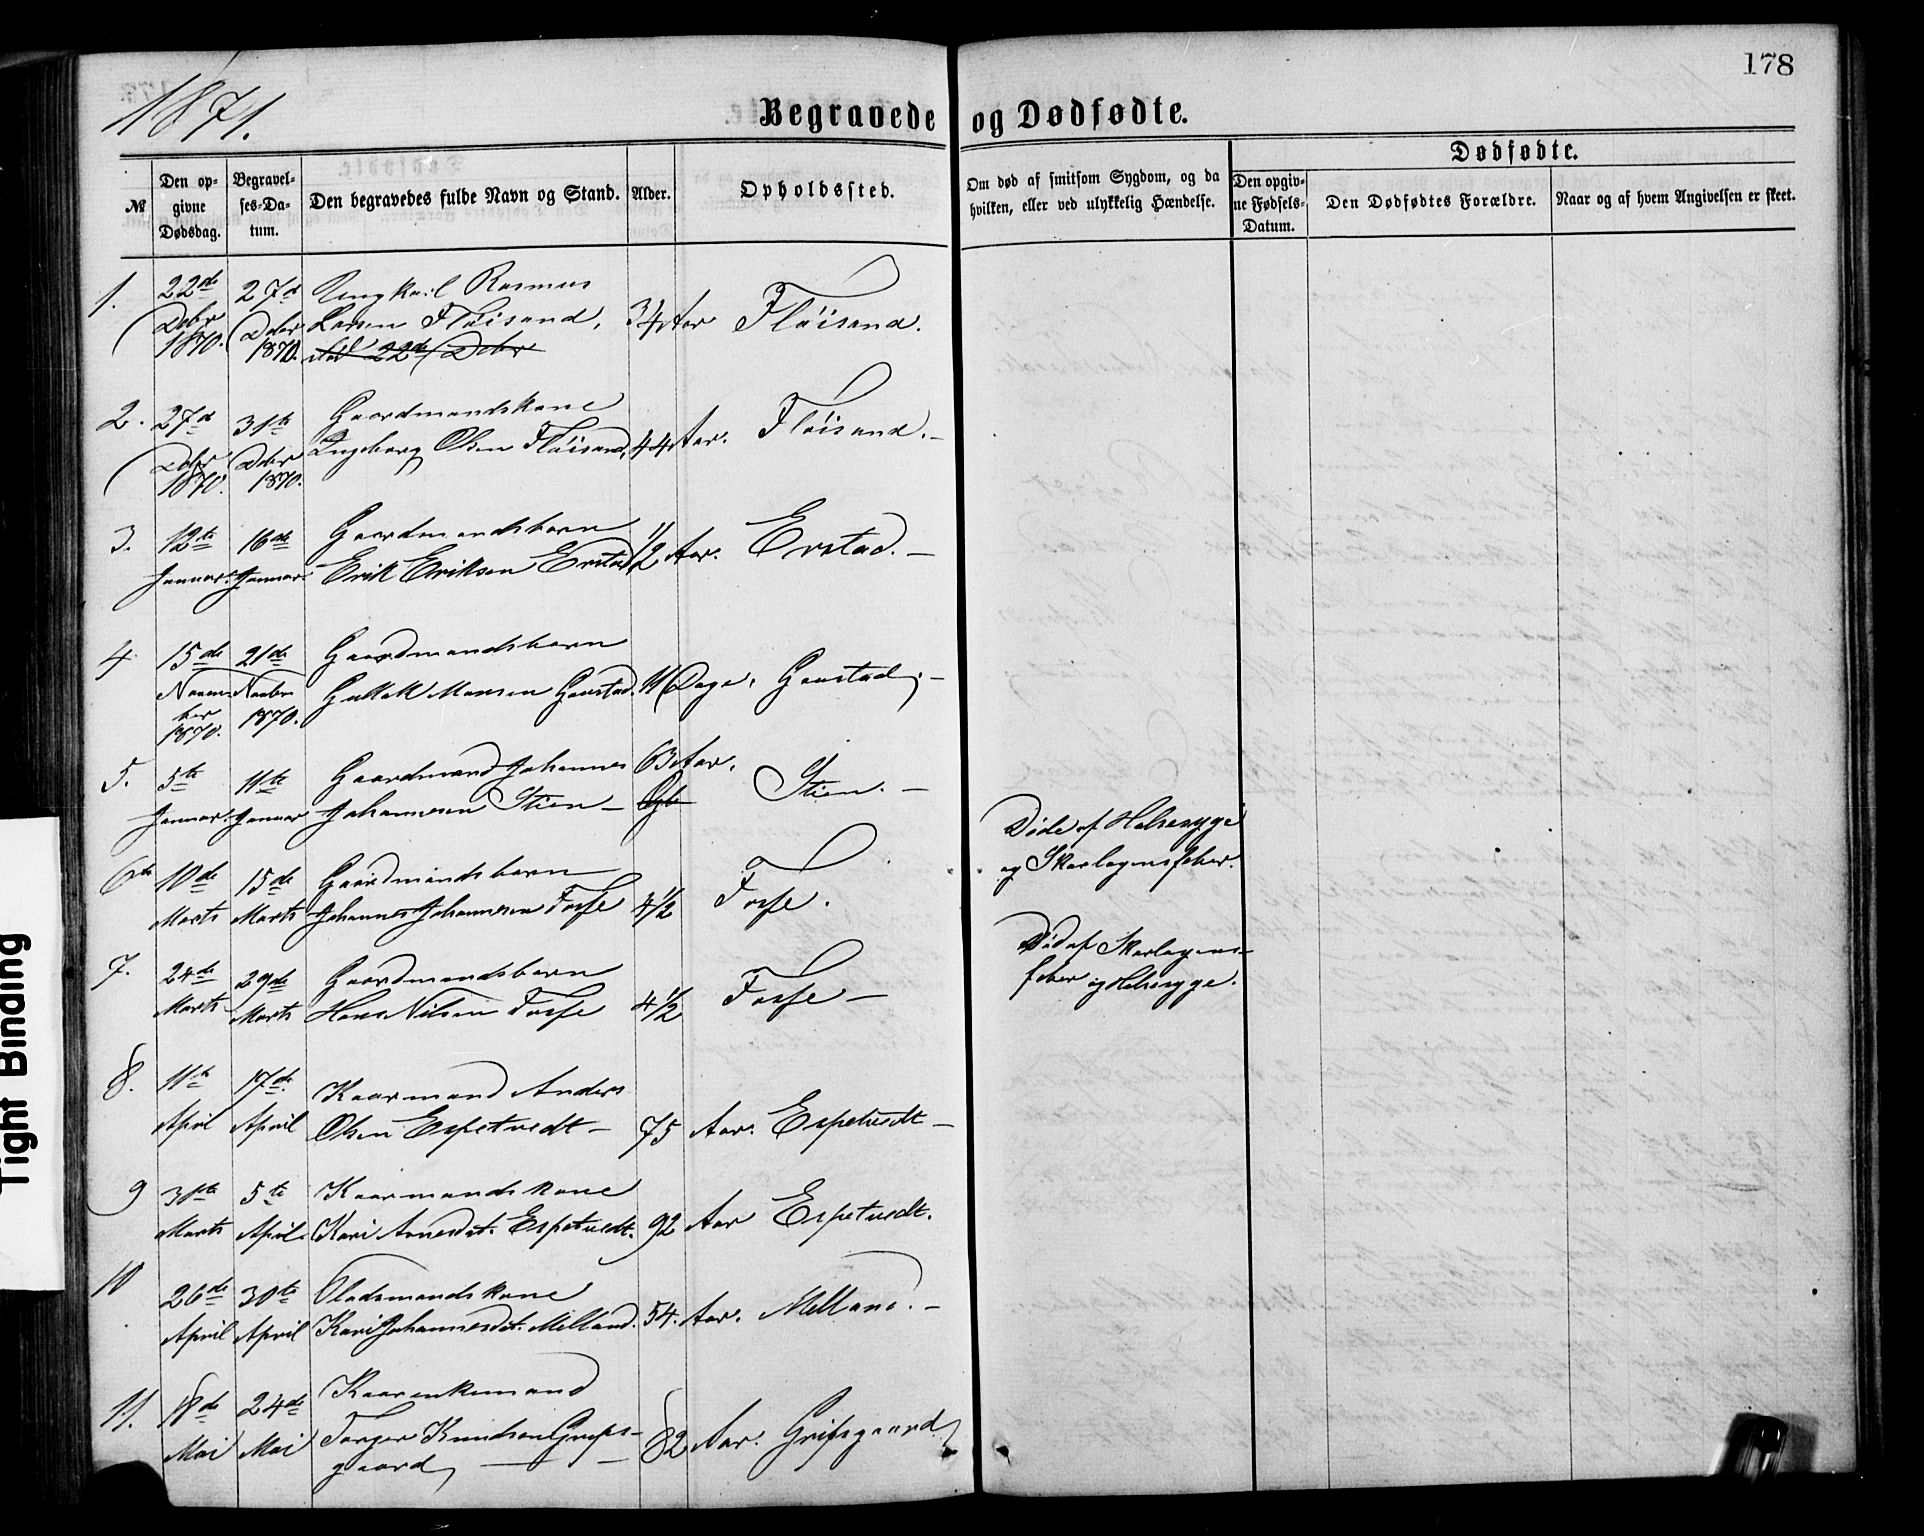 178
1871.
Begravede og Dødfødte.
№
Den op-
givne
Dødsdag.
Begravel-
ses-Da-
tum.
Den begravedes fulde Navn og Stand.
Alder.
Opholdssted.
Om død af smitsom Sygdom, og da
hvilken, eller ved ulykkelig Hændelse.
Dødfødte.
Den opgiv-
ne Fødsels-
Datum.
Den Dødfødtes Forældre.
Naar og af hvem Angivelsen er skeet.
1.
22de
Debr
1870.
27d
Debr
1870.
Ungkarl Rasmus
Larsen Fløisand,
død 22de Debr
34 Aar
Fløisand.
2.
27d
Debr
1870.
31te
Debr
1870.
Gaardmandskone
Ingeborg Olsen Fløisand,
44 Aar.
Fløisand. –
3.
12te
Januar.
16de
Januar.
Gaardmandsbarn
Erik Eriksen Erstad
1/2 Aar.
Erstad. –
4
15de
Novem-
ber
1870.
21de
Novbr
1870.
Gaardmandsbarn
Monsen Gaustad.
11 Dage.
Gaustad, –
5.
5te
Januar.
11te
Januar
Gaardmand Johannes
Johannesen Stien –
63 Aar.
Stien. –
6te
10de
Marts
15de
Marts
Gaardmandsbarn
Johannes Johannesen Fosse
4 1/2
Fosse.
Døde af Halssyge
og Skarlagensfeber.
7.
24de
Marts
29de
Marts
Gaardmandsbarn
Hans Nilsen Fosse
4 1/2
Fosse –
Død af Skarlagens-
feber og Halssyge.
8.
11te
April
17de
April
Kaarmand Anders
Olsen Espetvedt –
75 Aar.
Espetvedt –
9
31te
Marts
5te
April
Kaarmandskone
Kari Arnesdt. Espetvedt.
92 Aar
Espetvedt.
10
26de
April
30te
April
Pladsmandskone
Kari Johannesdt. Milland.
54. Aar.
Milland. –
11.
18de
Mai
24de
Mai
Kaarenkemand
Torger Knudsen Grefs-
gaard, –
82 Aar.
Grifsgaard,
Tight Binding